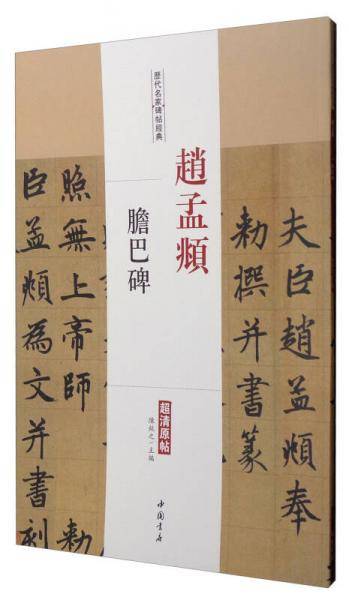 歷代名家碑帖經典
趙孟頫
膽巴碑
超清原帖
陳鈍之/主編
中国书店
夫臣趙孟頫奉
勅撰并書篆
照無上帝師
勅
臣孟頫為文并書刻